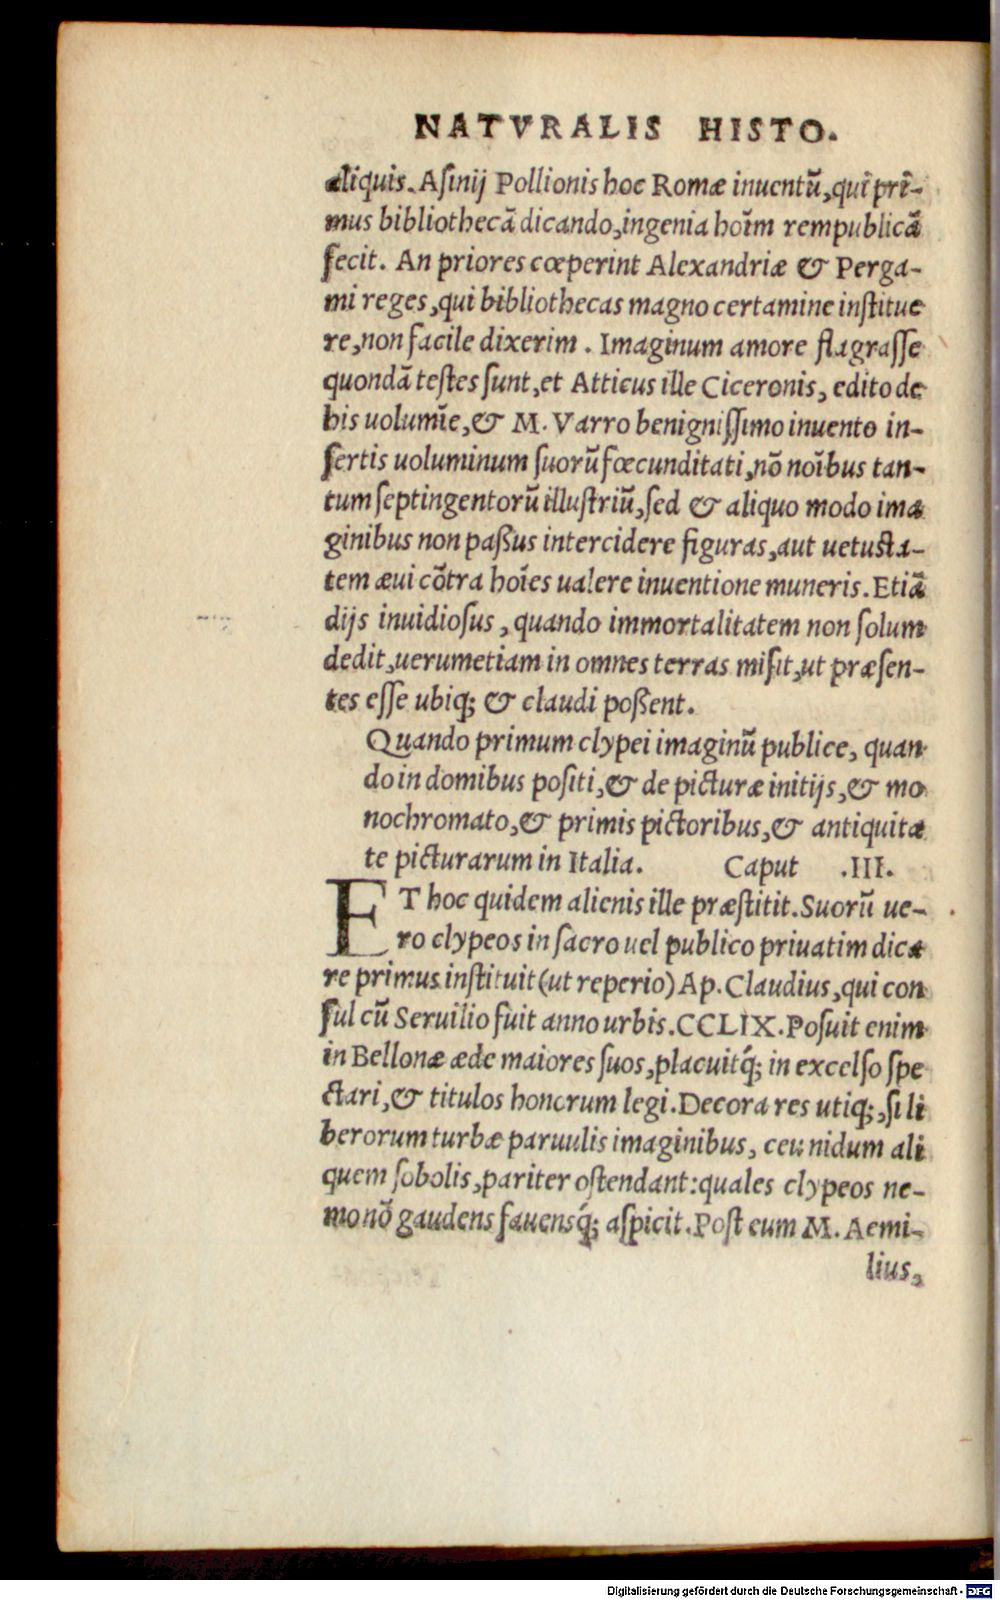 NATVRALIS HISTO.
aliquis. Asinij Pollionis hoc Romæ inuentũ, qui prĩ-
mus bibliothecã dicando, ingenia hoĩm rempublicã
fecit. An priores cœperint Alexandriæ & Perga-
mi reges, qui bibliothecas magno certamine instituе
re, non facile dixerim. Imaginum amore flagrasse
quondã testes sunt, et Atticus ille Ciceronis, edito de
his uolumĩe, & M. Varro benignissimo inuento in-
sertis uoluminum suorũ fœcunditati, nõ noĩbus tan-
tum septingentorũ illustriũ, sed & aliquo modo ima
ginibus non paßus intercidere figuras, aut uetusta-
tem æui cõtra hoĩes ualere inuentione muneris. Etiã
dijs inuidiosus, quando immortalitatem non solum
dedit, uerumetiam in omnes terras misit, ut præsen-
tes esse ubiq; & claudi poßent.
Quando primum clypei imaginũ publice, quan
do in domibus positi, & de picturæ initijs, & mo
nochromato, & primis pictoribus, & antiquita
te picturarum in Italia. Caput .III.
ET hoc quidem alienis ille præstitit. Suorũ ue-
ro clypeos in sacro uel publico priuatim dica
re primus instituit (ut reperio) Ap. Claudius, qui con
sul cũ Seruilio fuit anno urbis. CCLIX. Posuit enim
in Bellonæ æde maiores suos, placuitq́; in excelso spe
ctari, & titulos honorum legi. Decora res utiq;, si li
berorum turbæ paruulis imaginibus, ceu nidum ali
quem sobolis, pariter ostendant: quales clypeos ne-
mo nõ gaudens fauensq́; aspicit. Post eum M. Aemi-
lius,
Digitalisierung gefördert durch die Deutsche Forschungsgemeinschaft - DFG